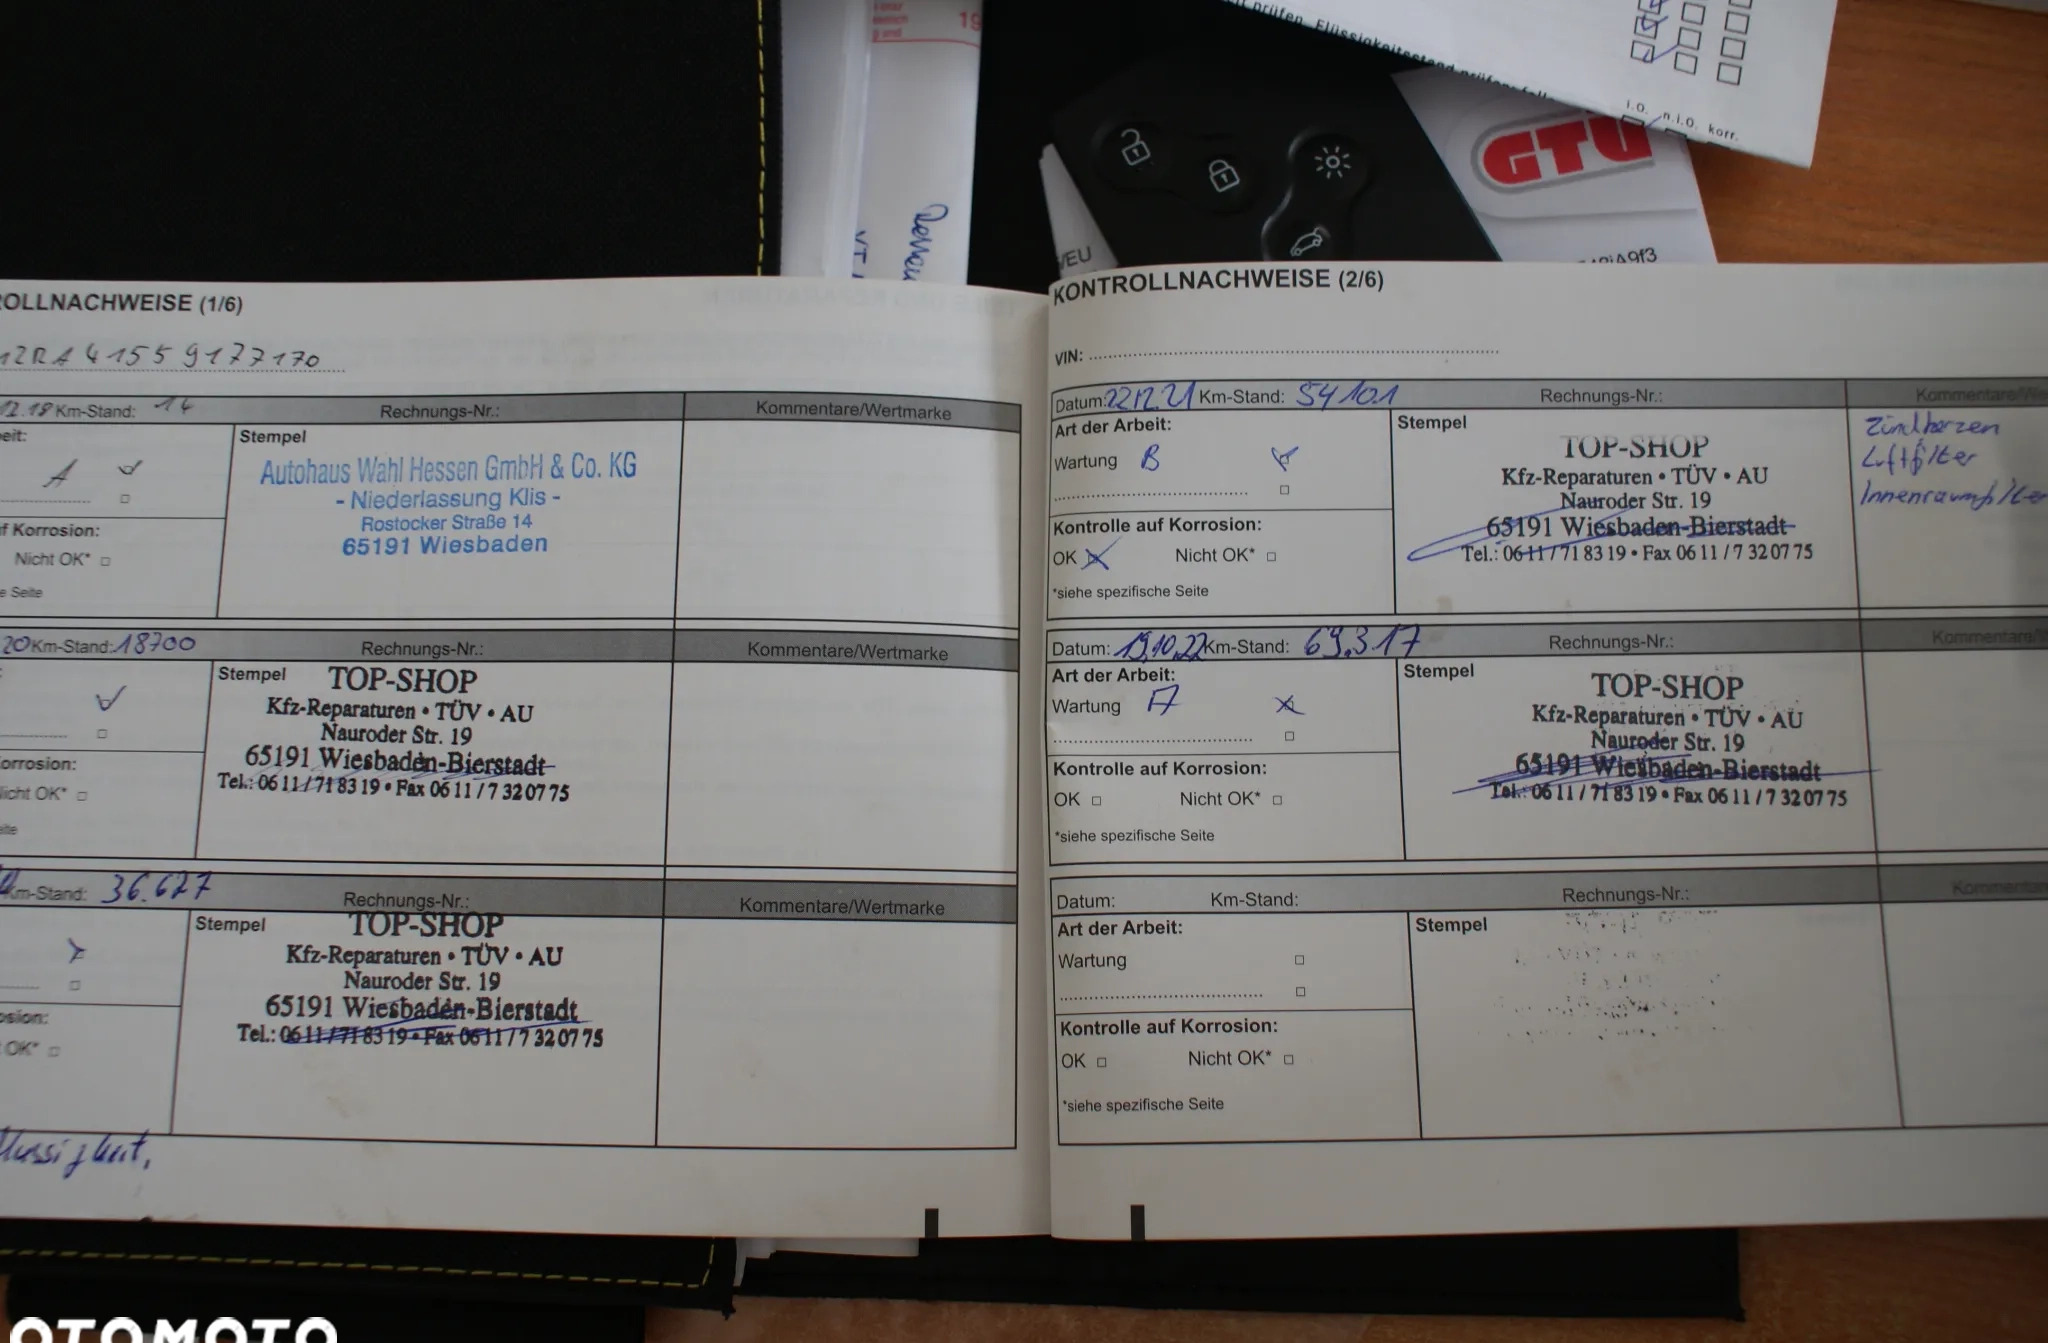 19
prüfen, Flüssigkeitsstand prüfen
i.O. n.i.O. korr.
GTÜ
/EU
OLLNACHWEISE (1/6)
12.18 Km-Stand: 14 Rechnungs-Nr.: Kommentare/Wertmarke
eit:
A
Stempel
Autohaus Wahl Hessen GmbH & Co. KG
- Niederlassung Klis -
Rostocker Straße 14
65191 Wiesbaden
f Korrosion:
Nicht OK* □
e Seite
20 Km-Stand: 18700 Rechnungs-Nr.: Kommentare/Wertmarke
Stempel
TOP-SHOP
Kfz-Reparaturen • TÜV • AU
Nauroder Str. 19
65191 Wiesbaden-Bierstadt
Tel.: 06 11 / 71 83 19 • Fax 06 11 / 7 32 07 75
orrosion:
icht OK* □
eite
Km-Stand: 36.627 Rechnungs-Nr.: Kommentare/Wertmarke
Stempel
TOP-SHOP
Kfz-Reparaturen • TÜV • AU
Nauroder Str. 19
65191 Wiesbaden-Bierstadt
Tel.: 06 11 / 71 83 19 • Fax 06 11 / 7 32 07 75
osion:
OK* □
lüssigkeit,
KONTROLLNACHWEISE (2/6)
VIN:
Datum: 22.12.21 Km-Stand: 54101 Rechnungs-Nr.: Kommentare/We
Art der Arbeit:
Wartung B
Kontrolle auf Korrosion:
OK Nicht OK* □
*siehe spezifische Seite
Stempel
TOP-SHOP
Kfz-Reparaturen • TÜV • AU
Nauroder Str. 19
65191 Wiesbaden-Bierstadt
Tel.: 06 11 / 71 83 19 • Fax 06 11 / 7 32 07 75
Zündkerzen
Luftfilter
Innenraumfilter
Datum: 19.10.22 Km-Stand: 69.317 Rechnungs-Nr.: Kommentare/
Art der Arbeit:
Wartung A
Kontrolle auf Korrosion:
OK □ Nicht OK* □
*siehe spezifische Seite
Stempel
TOP-SHOP
Kfz-Reparaturen • TÜV • AU
Nauroder Str. 19
65191 Wiesbaden-Bierstadt
Tel.: 06 11 / 71 83 19 • Fax 06 11 / 7 32 07 75
Datum: Km-Stand: Rechnungs-Nr.: Kommentar
Art der Arbeit:
Wartung □
□
Kontrolle auf Korrosion:
OK □ Nicht OK* □
*siehe spezifische Seite
Stempel
OTOMOTO